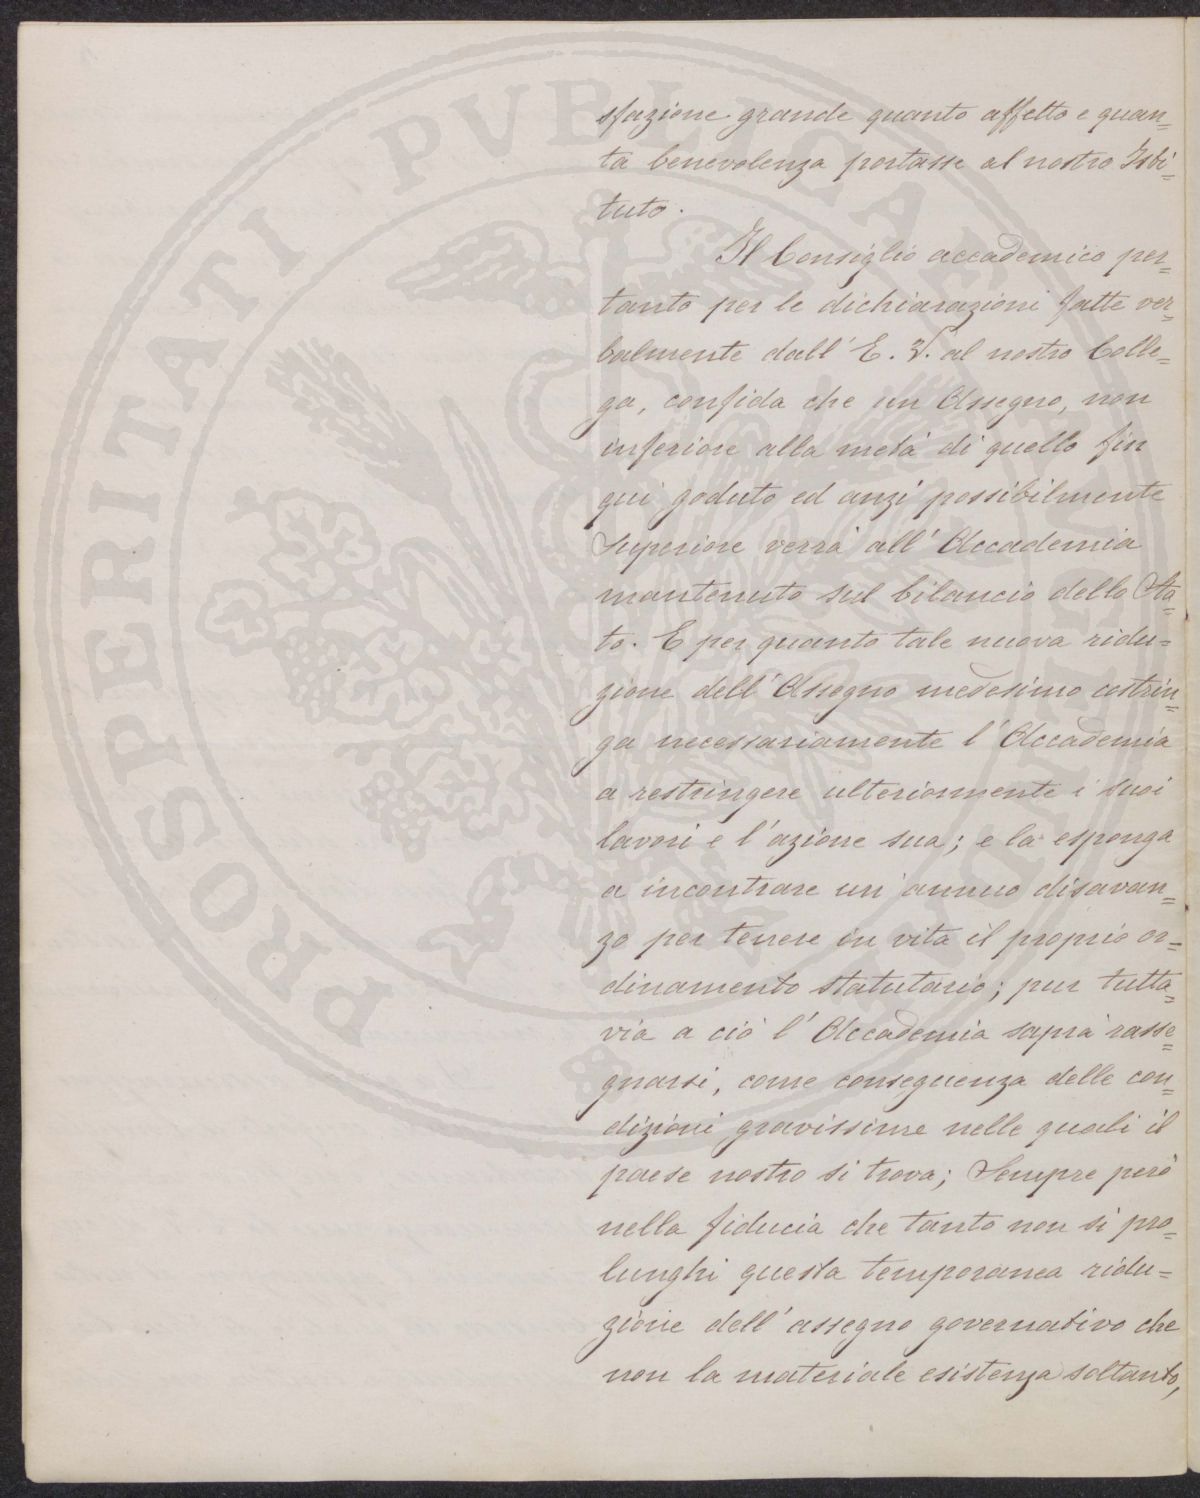 sfazione grande quanto affetto e quan=
ta benevolenza portasse al nostro Isti=
tuto.
Il Consiglio accademico per=
tanto per le dichiarazioni fatte ver=
balmente dall' E. V. al nostro Colle=
ga, confida che un Assegno, non
inferiore alla metà di quello fin
qui goduto ed anzi possibilmente
Superiore verrà all' Accademia
mantenuto sul bilancio dello Sta=
to. E per quanto tale nuova ridu=
zione dell' Assegno medesimo costrin=
ga necessariamente l' Accademia
a restringere ulteriormente i suoi
lavori e l' azione sua; e la esponga
a incontrare un annuo disavan=
zo per tenere in vita il proprio or=
dinamento statutario; pur tutta=
via a ciò l' Accademia saprà rasse=
gnarsi, come conseguenza delle con=
dizioni gravissime nelle quali il
paese nostro si trova; Sempre però
nella fiducia che tanto non si pro=
lunghi questa temporanea ridu=
zione dell' assegno governativo che
non la materiale esistenza soltanto,
PROSPERITATI PVBLICAE